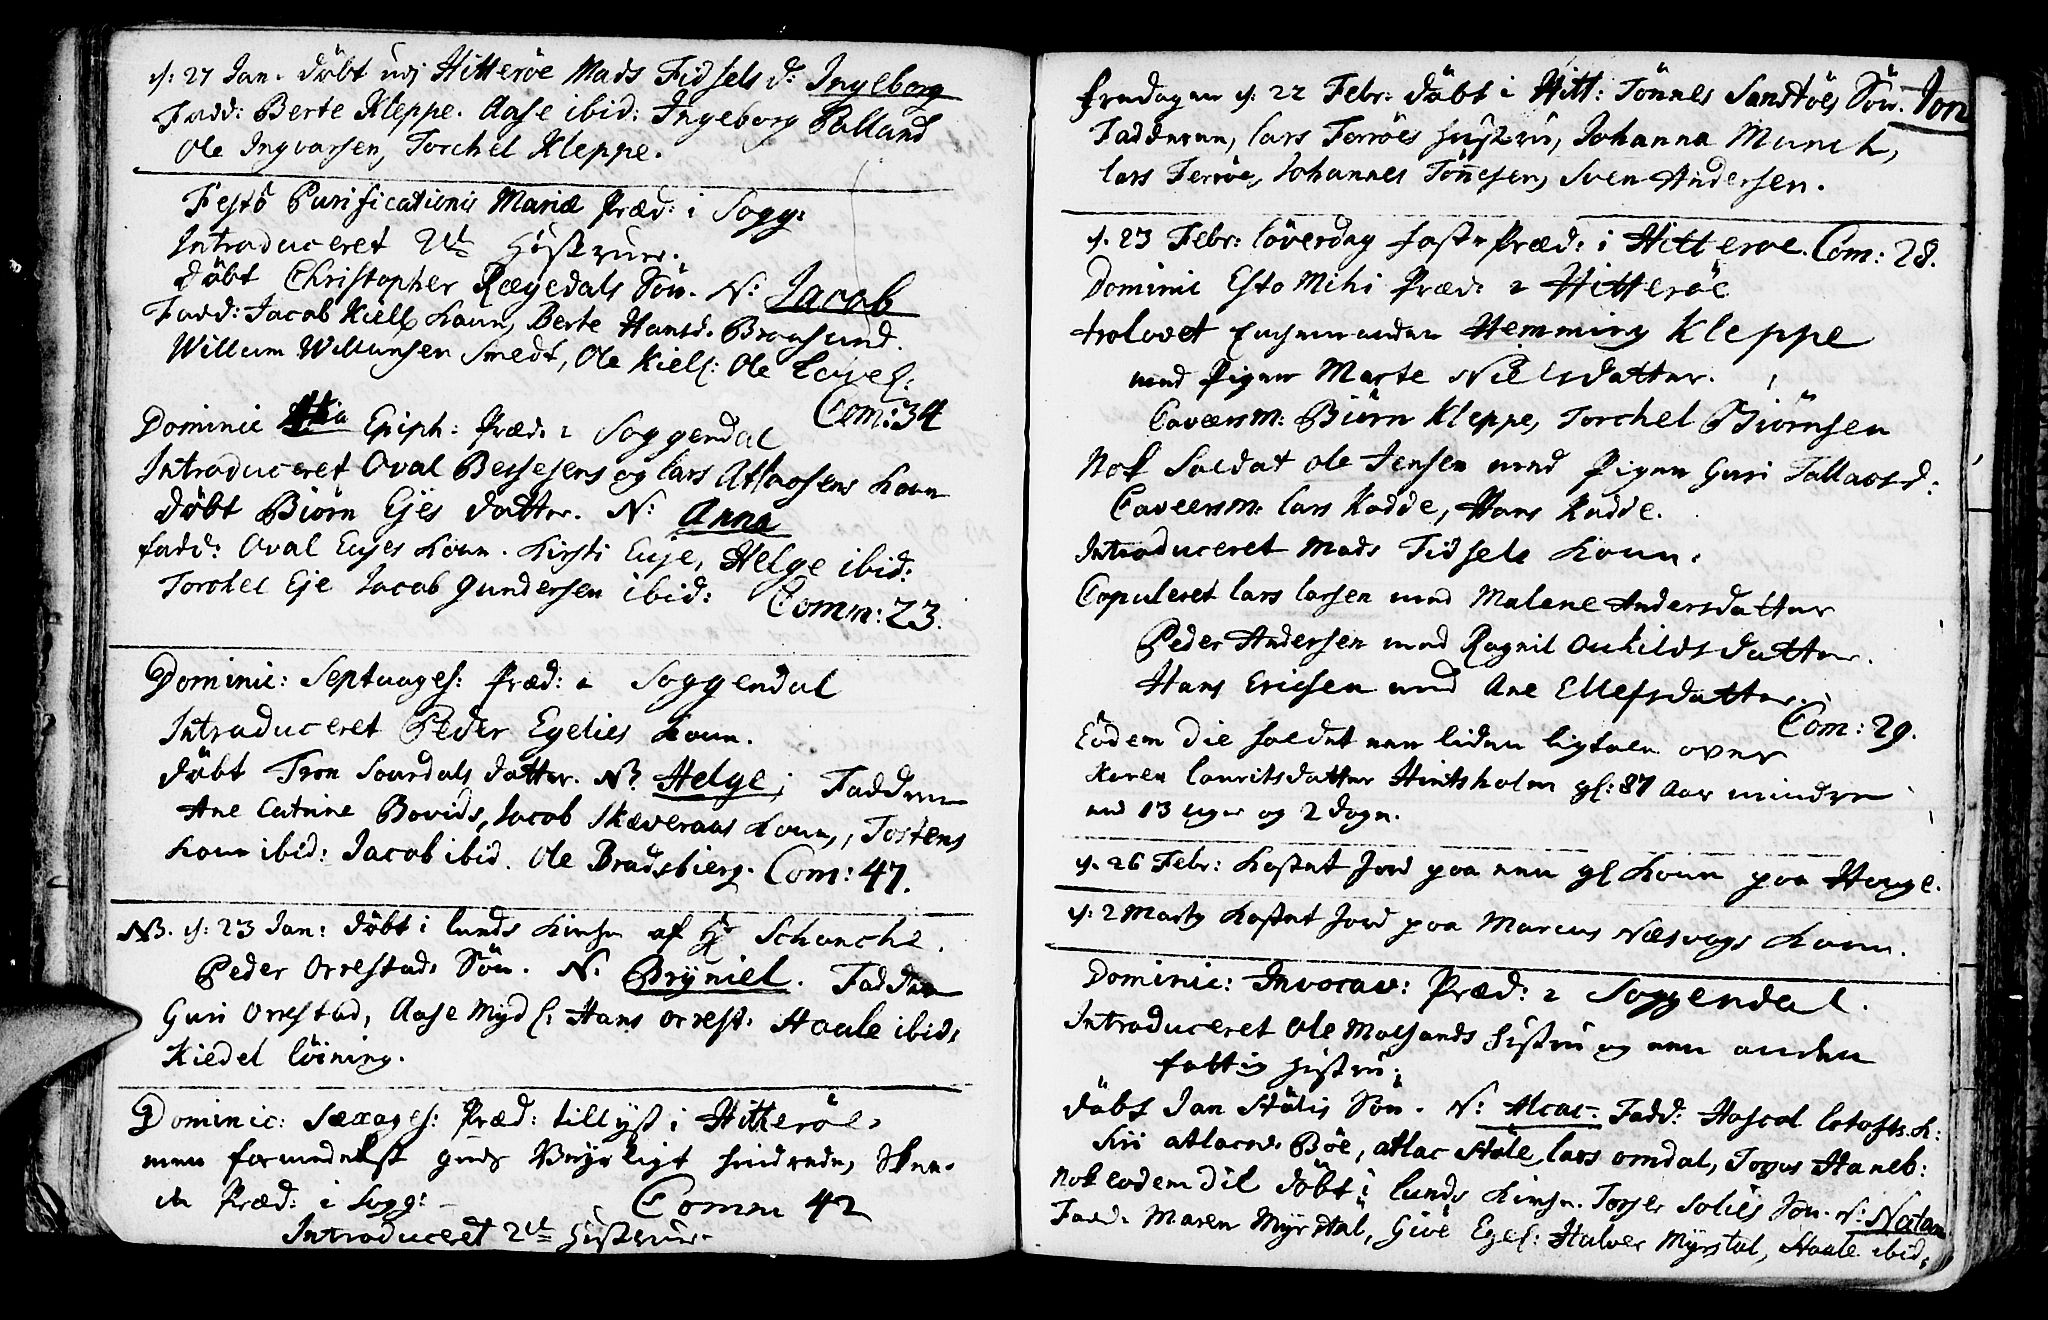 d: 27 Jan. döbt udj Hitteröe Mads Fidsels d: Ingeborg
Fadd: Berte Kleppe. Aase ibid: Ingeborg Palland
Ole Ingvarsen, Torchel Kleppe.
Festo Purificationis Mariæ Præd: i Sogg:
Introduceret 2de Hustruer.
döbt Christopher Rægedals Sön. N: Jacob
Fadd: Jacob Kiels: Koun, Berte Hansd. Braasund.
Willum Willumsen Smedt, Ole Kiels: Ole
Com: 34
Dominic Epiph: Præd: i Soggendal
Introduceret Oval Bessesens og Lars Atlaosens Koun
döbt Biörn Ejes datter. N: Anna
fadd: Oval Eyes Koun. Kirsti Eye, Helge ibid:
Torchel Eje Jacob Gundersen ibid: Comm: 23.
Dominic: Septuages: Præd: i Soggendal
Introduceret Peder Egelies Koun.
döbt Tron Sourdals datter. N: Helge; Faddere
Ane Catrine Bovids, Jacob Skæveraas Koun, Tostens
Koun ibid: Jacob ibid. Ole Bradsbierg. Com: 47.
NB. d: 23 Jan: döbt i Lunds Kirke af Hr Schanche.
Peder Orrestads Sön. N. Brÿniel. Faddere
Guri Orrestad, Aase Myds: Hans Orrest. Staale ibid:
Kiedel Löining.
Dominic: Sexages: Præd: tillyst i Hitteröe
men formedelst guds Veyrligt hindrede,
Præd: i Sogg: Comm 42
Introduceret 2de Hustruer.
fredagen d: 22 Febr: döbt i Hitt: Tönnes Sandtöes Sön. Jon
Fadderne, Lars Ferröes Hustru, Johanna Munch,
Lars Ferröe, Johannes Tönnesen, Sven Andersen.
d. 23 Febr: löverdag faste Præd: i Hitteröe. Com: 28.
Dominic Esto Mihi Præd: i Hitteröe
trolovet Enchemanden Hemming Kleppe
med Pigen Marte Nielsdatter.
Caveersm: Biörn Kleppe, Torchel Biörnsen
Nok Soldat Ole Jensen med Pigen Guri Tallacsd:
Caveersm: Lars Kadde, Hans Kadde.
Introduceret Mads Fidsels Koun.
Copuleret Lars Larsen med Malene Andersdatter
Peder Andersen med Ragnil Ouhildsdatter.
Hans Ericsen med Ane Ellefsdatter.
Com: 29.
Eodem die holdet een liden ligtale over
Karen Lauritsdatter Hintsholm gl: 87 Aar mindre
end 13 uger og 2 dage.
d. 26 Febr: Kastet Jord paa een gl Koun paa Houge.
d: 2 Marty Kastet Jord paa Marcus Næsvogs Koun.
Dominic: Invocav: Præd: i Soggendal.
Introduceret Ole Molsands Hustru og een anden
fattig Hustru.
döbt Jan Stölis Sön. N: Fadd:
Siri Atlacsd: Böe, Atlac Stöle, Lars Omdal,
Nok eodem die döbt i Lunds Kirke. Torger Solies Sön. N: Natan
Fadd. Maren Myrstal, Halver Myrstal, Staale ibid: